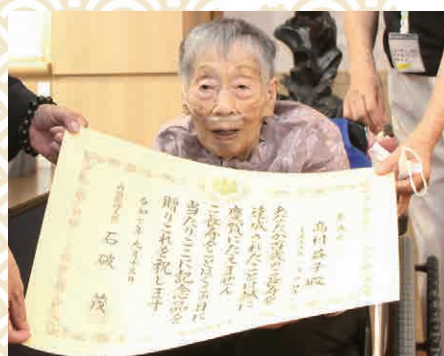 殿
あなたが百歳のご長寿を
達成されたことは誠に
慶賀にたえません
ご長寿をことほぐこの日に
当たりここに記念品を
贈りこれを祝します
令和七年九月十五日
内閣総理大臣 石破 茂